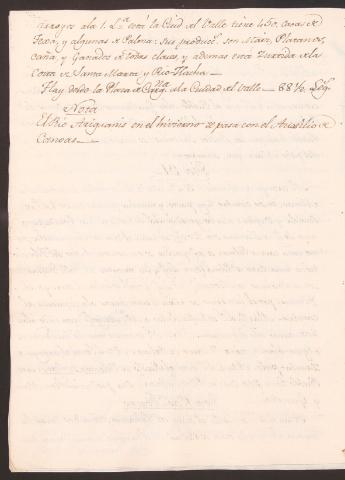 arroyos a la 1. Lª está la Ciud. del Valle tiene 450. casas de
Texa, y algunas de Palma: Sus producc.ˢ son Maiz, Platanos,
caña, y Ganados de todas clases, y ademas esta de la
costa de Santa Marta y Rio-Hacha.
Hay desde la Plaza de Cartg.ⁿᵃ a la Ciudad del Valle — 88½. Leg.ˢ
Nota
El Rio Ariguanis en el Invierno se pasa con el Auxilio de
Canoas.